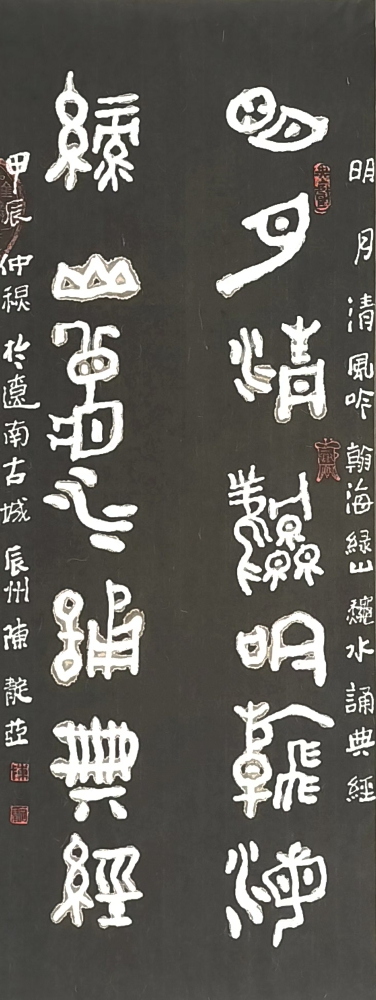 明月清風吟翰海綠山龝水誦典經
明月清風吟翰海
綠山龝水誦典經
甲辰仲於遼南古城辰州陳亞